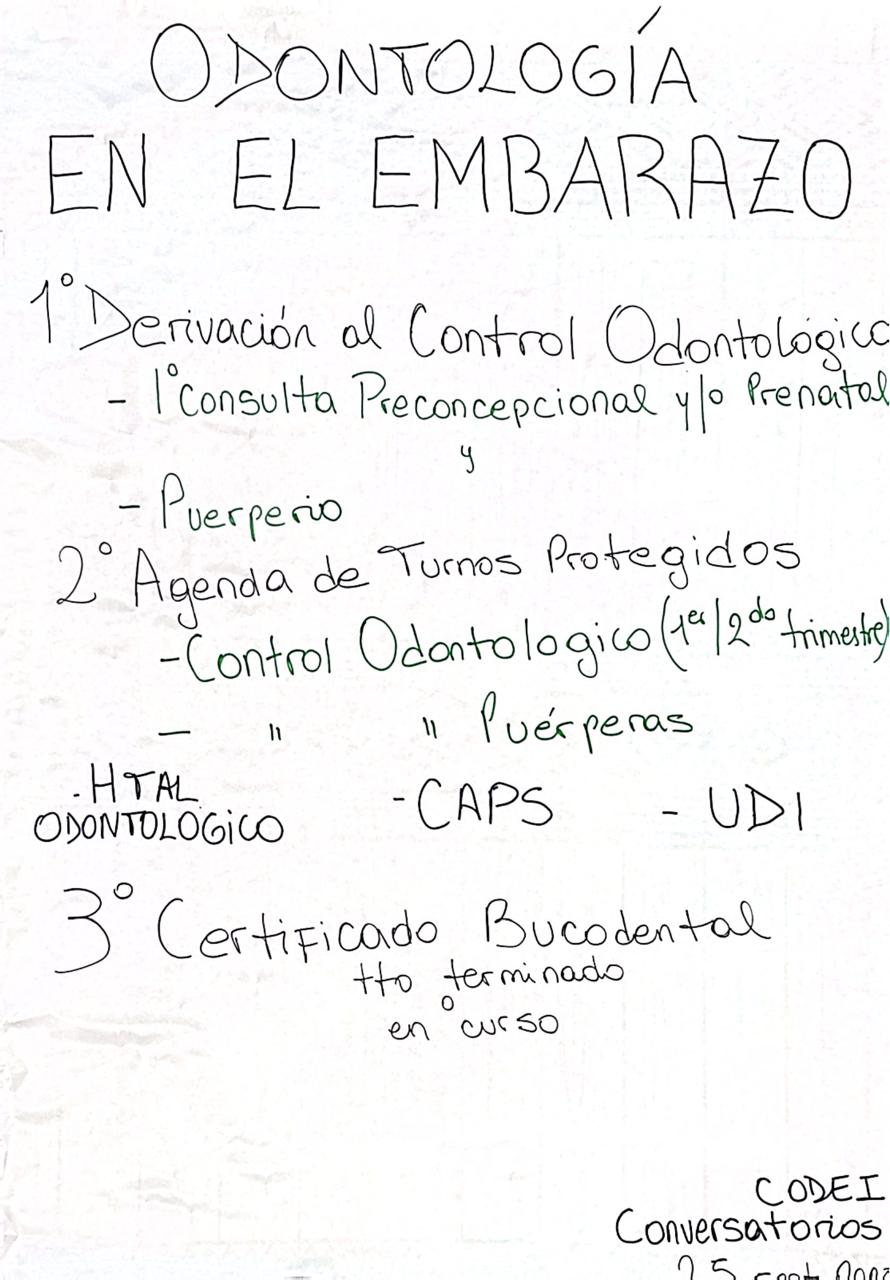 ODONTOLOGÍA
EN EL EMBARAZO
1° Derivación al Control Odontológico
- 1° Consulta Preconcepcional y/o Prenatal
y
- Puerperio
2° Agenda de Turnos Protegidos
- Control Odontologico (1er/2do trimestre)
- " " Puérperas
- HTAL ODONTOLOGICO - CAPS - UDI
3° Certificado Bucodental
tto terminado
o
en curso
CODEI
Conversatorios
25